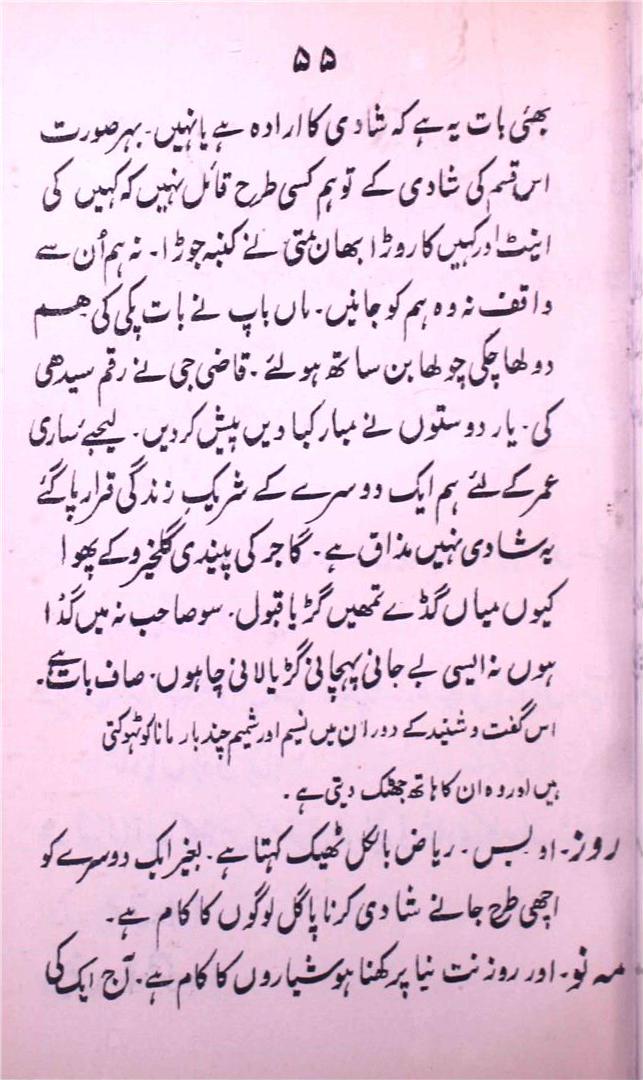 ۵۵
بھئی بات یہ ہے کہ شادی کا ارادہ ہے یا نہیں۔ بہر صورت
اس قسم کی شادی کے تو ہم کسی طرح قائل نہیں کہ کہیں کی
اینٹ اور کہیں کا روڑا بھان متی نے کنبہ جوڑا۔ نہ ہم اُن سے
واقف نہ وہ ہم کو جانیں۔ ماں باپ نے بات پکی کی ہم
دولھا چکی چولھا بن ساتھ ہولئے۔ قاضی جی نے رقم سیدھی
کی۔ یار دوستوں نے مبارکبادیں پیش کردیں۔ لیجیے ساری
عمر کے لئے ہم ایک دوسرے کے شریکِ زندگی قرار پاگئے
یہ شادی نہیں مذاق ہے۔ گاجر کی پیندی گلخیرو کے پھوا
کیوں میاں گڈے تمھیں گڑیا قبول۔ سو صاحب نہ میں گڈا
ہوں نہ ایسی بے جانی پہچانی گڑیا لانی چاہوں۔ صاف بات ہے۔
اس گفت و شنید کے دوران میں نسیم اور شمیم چند بار مانا کو ٹہوکتی
ہیں اور وہ ان کا ہاتھ جھٹک دیتی ہے۔
روز۔ اولیس۔ ریاض بالکل ٹھیک کہتا ہے۔ بغیر ایک دوسرے کو
اچھی طرح جانے شادی کرنا پاگل لوگوں کا کام ہے۔
مہ نو۔ اور روز نت نیا پرکھنا ہوشیاروں کا کام ہے۔ آج ایک کی